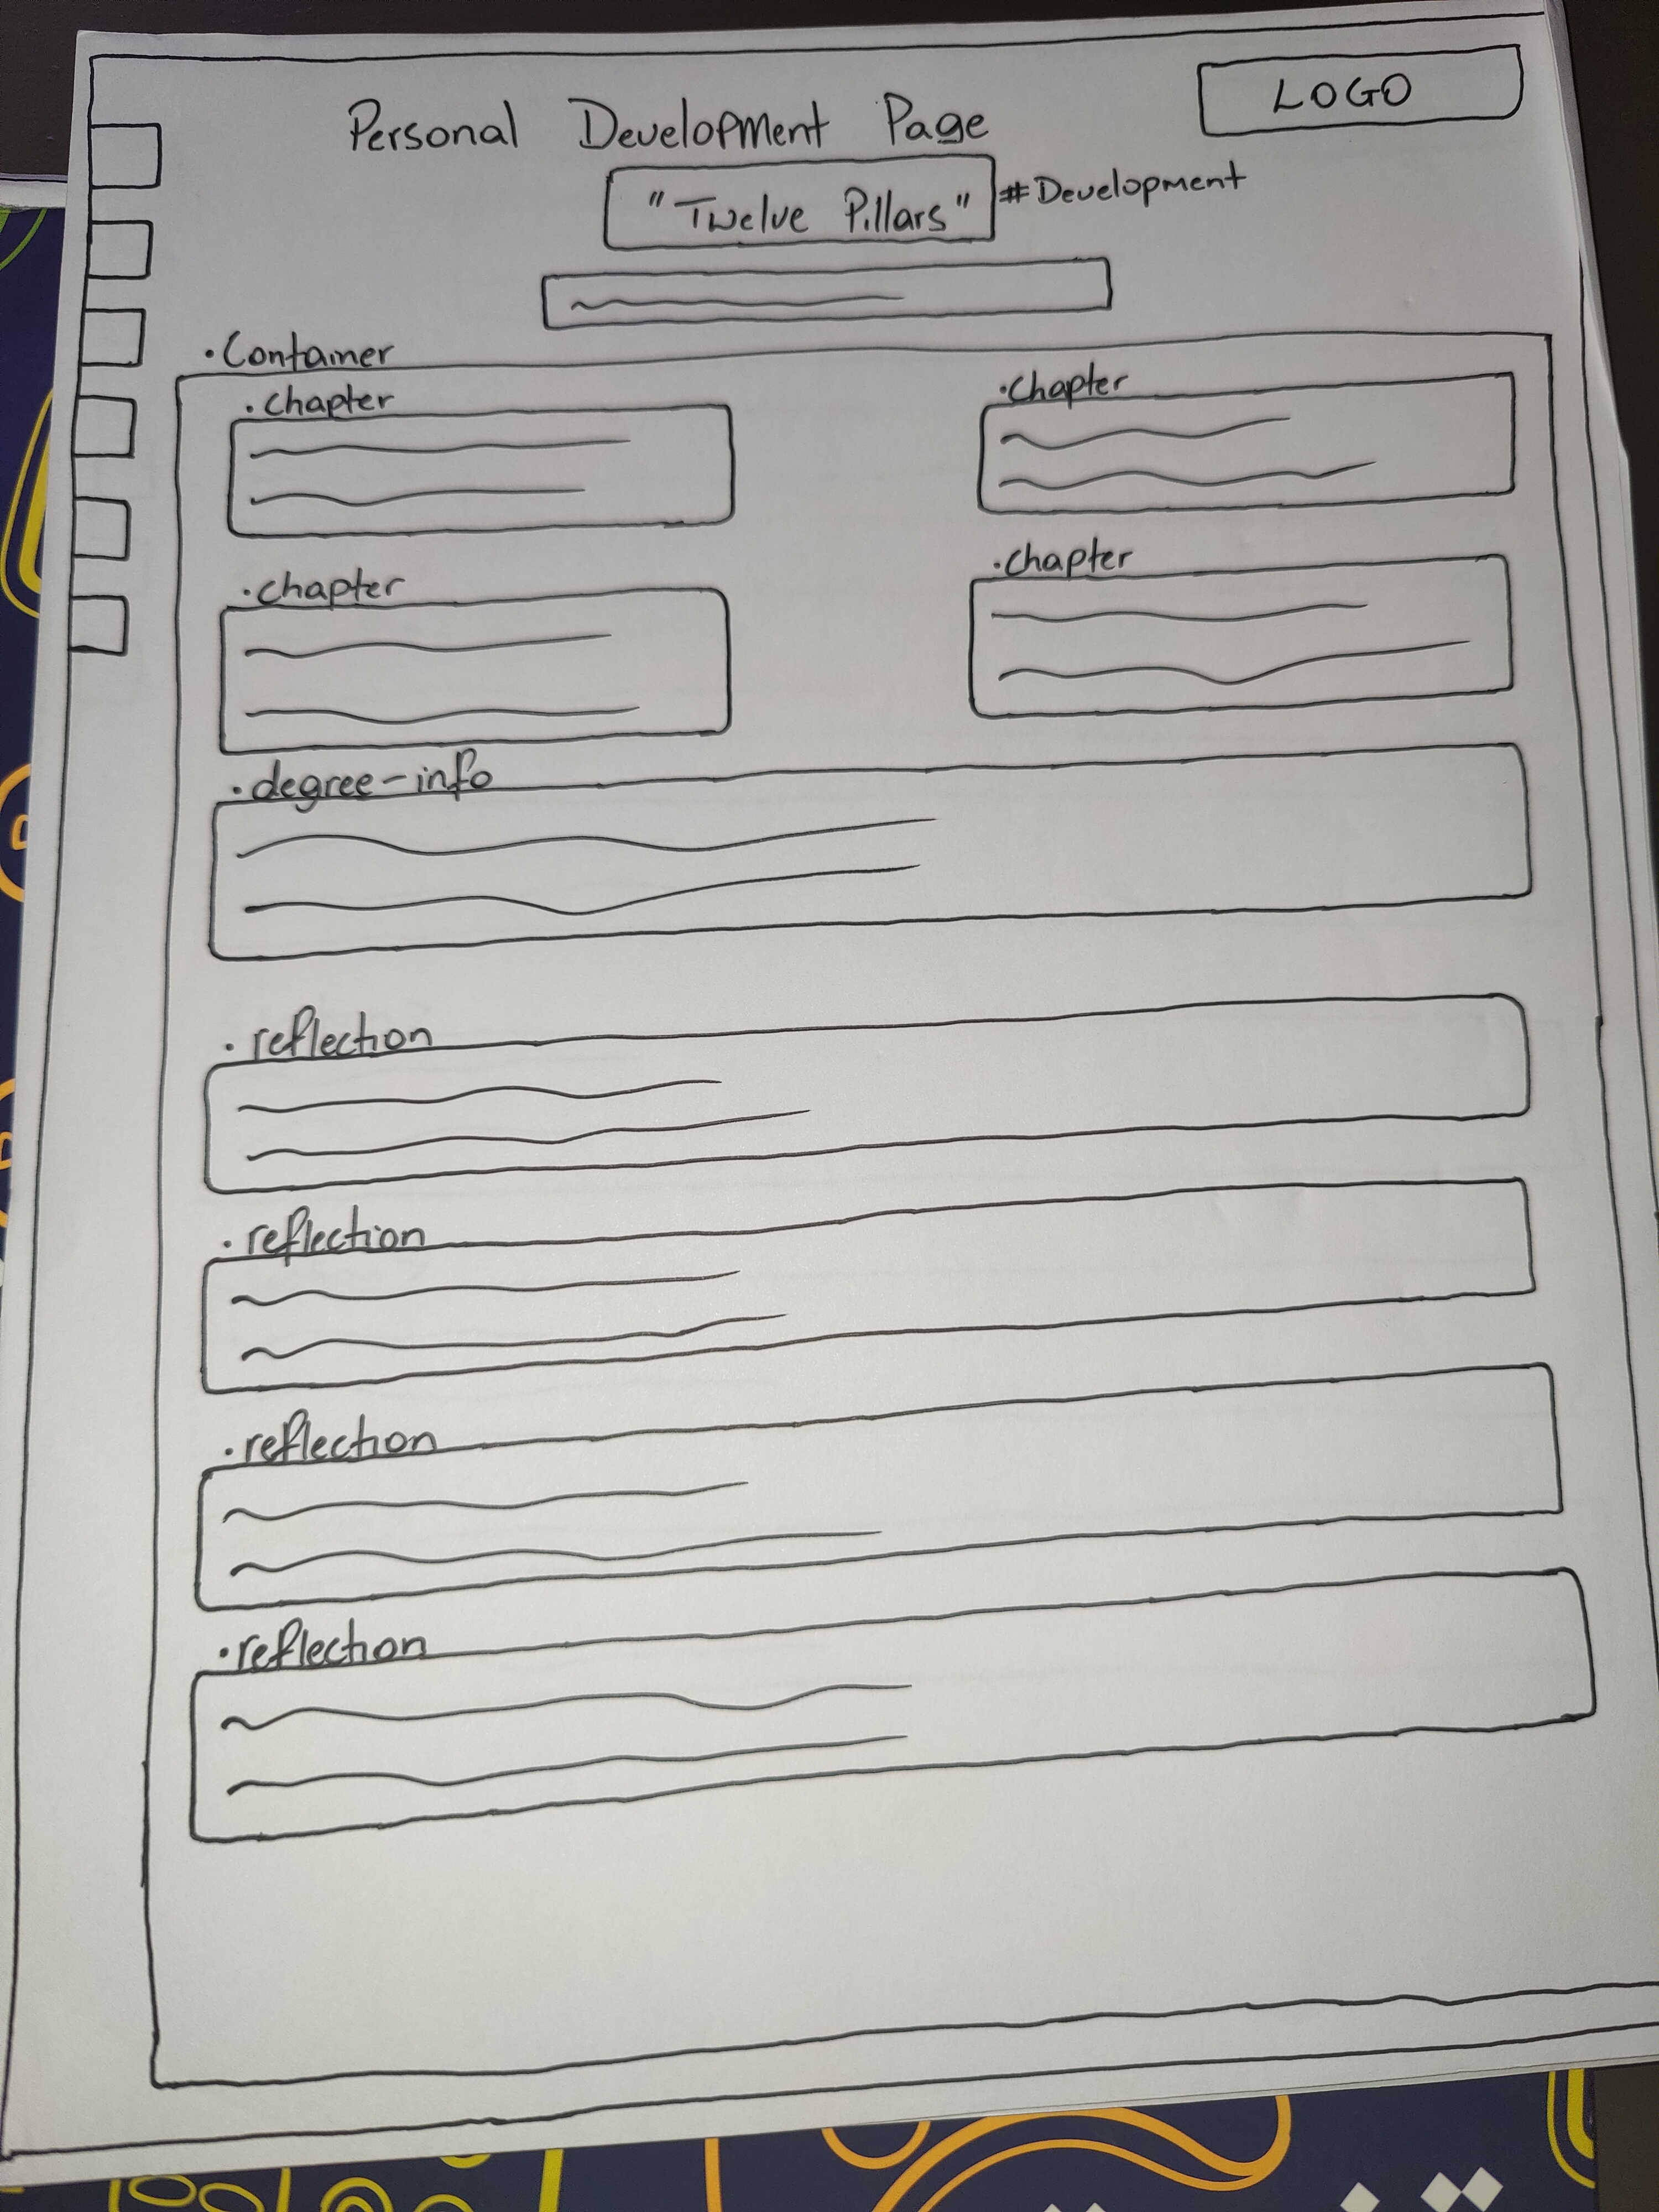 LOGO
Personal Development Page
"Twelve Pillars" #Development
.Container
.chapter .chapter
.chapter .chapter
.degree-info
.reflection
.reflection
.reflection
.reflection